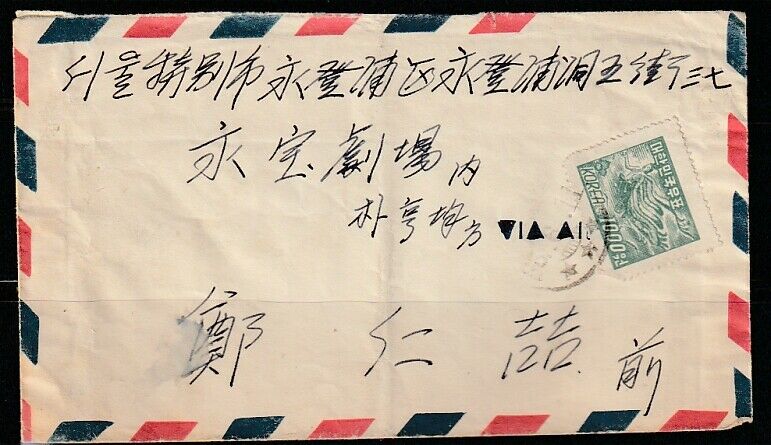 서울特別市永登浦区永登浦洞五街三七
永宝劇場内
朴亨埈方
VIA AI
鄭仁喆前
대한민국우표
KOREA
1000원